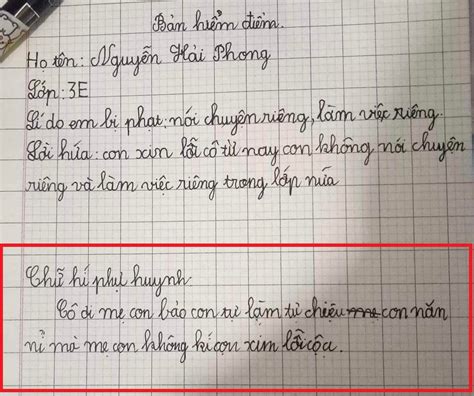 Bản kiểm điểm.
Họ tên: Nguyễn Hải Phong
Lớp: 3E
Lí do em bị phạt: nói chuyện riêng, làm việc riêng.
Lời hứa: con xin lỗi cô từ nay con không nói chuyện
riêng và làm việc riêng trong lớp nữa
Chữ kí phụ huynh:
Cô ơi mẹ con bảo con tự làm tự chịu me con năn
nỉ mà mẹ con không kí con xin lỗi cô ạ.